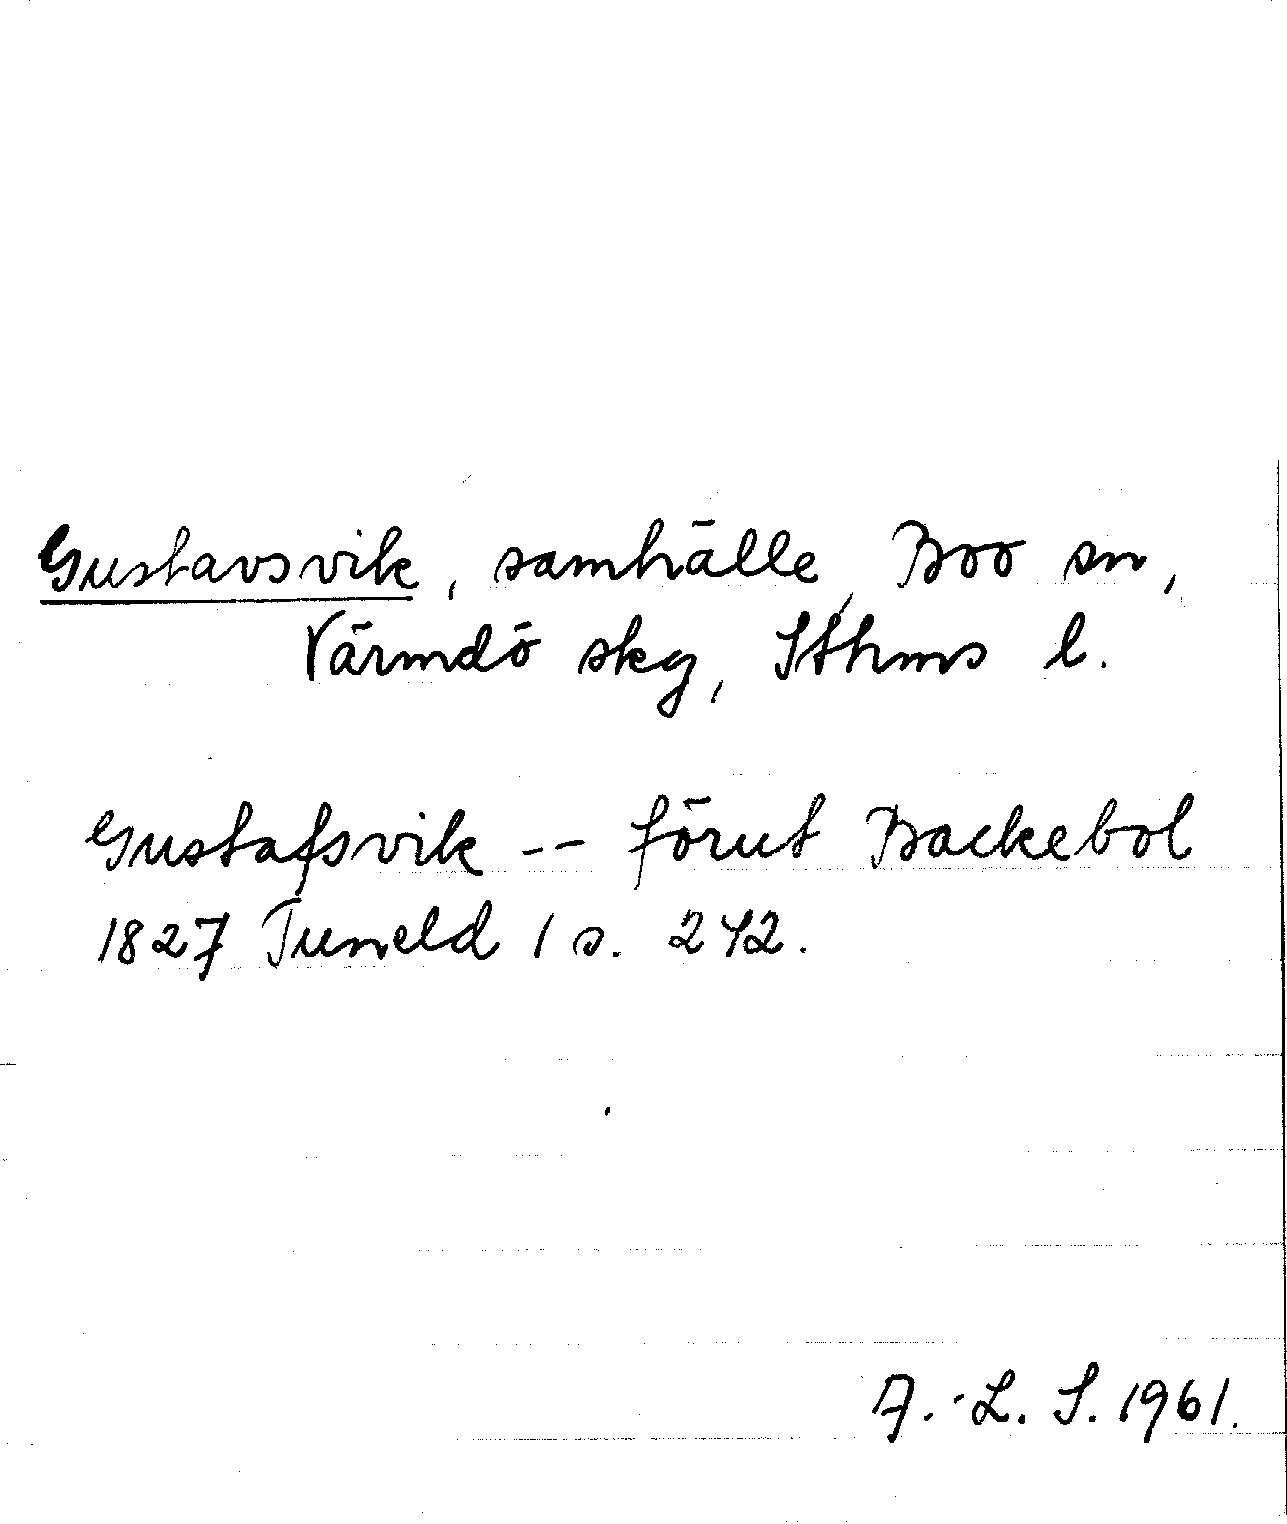 Gustavsvik, samhälle, Boo sn,
Värmdö skg, Sthms l.
Gustafsvik -- förut Backebol
1827 Tuneld 1 s. 242.
A.-L. S. 1961.